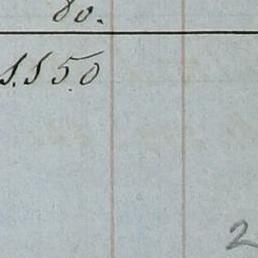 80.
1.150
2